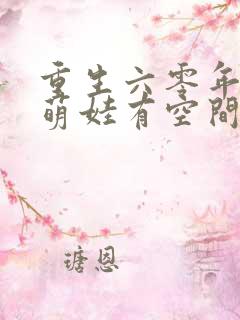 重生六零年
萌娃有空間
瑭恩